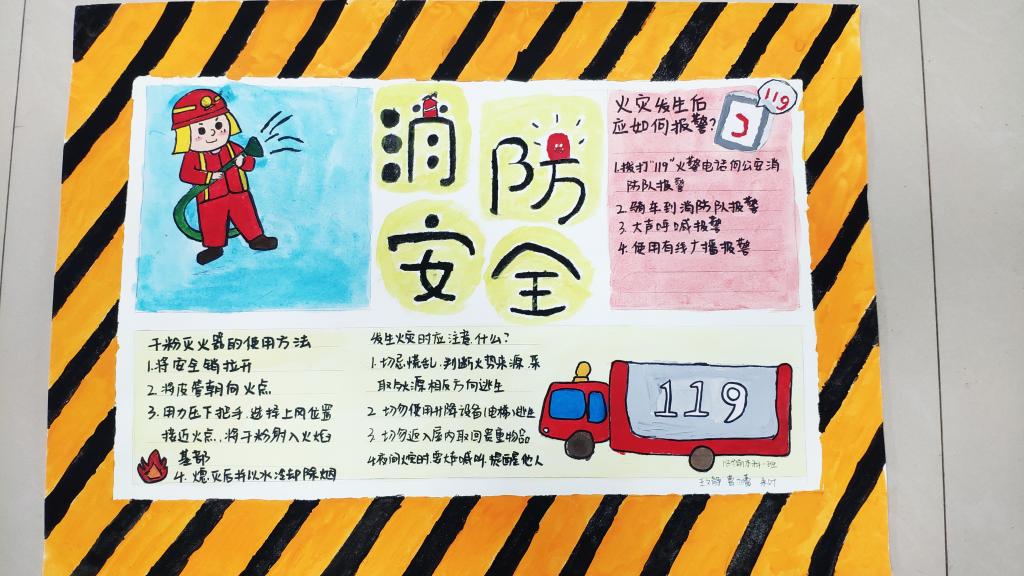 消防
安全
119
火灾发生后
应如何报警?
1.拨打"119"火警电话向公安消
防队报警
2.骑车到消防队报警
3.大声呼喊报警
4.使用有线广播报警
干粉灭火器的使用方法
1.将安全销拉开
2.将皮管朝向火点
3.用力压下把手,选择上风位置
接近火点,将干粉射入火焰
基部
4.熄灭后并以水冷却除烟
发生火灾时应注意什么?
1.切忌慌乱,判断火势来源,采
取与火源相反方向逃生
2.切勿使用升降设备(电梯)逃生
3.切勿返入屋内取回贵重物品
4.夜间火灾时,要大声喊叫,提醒他人
119